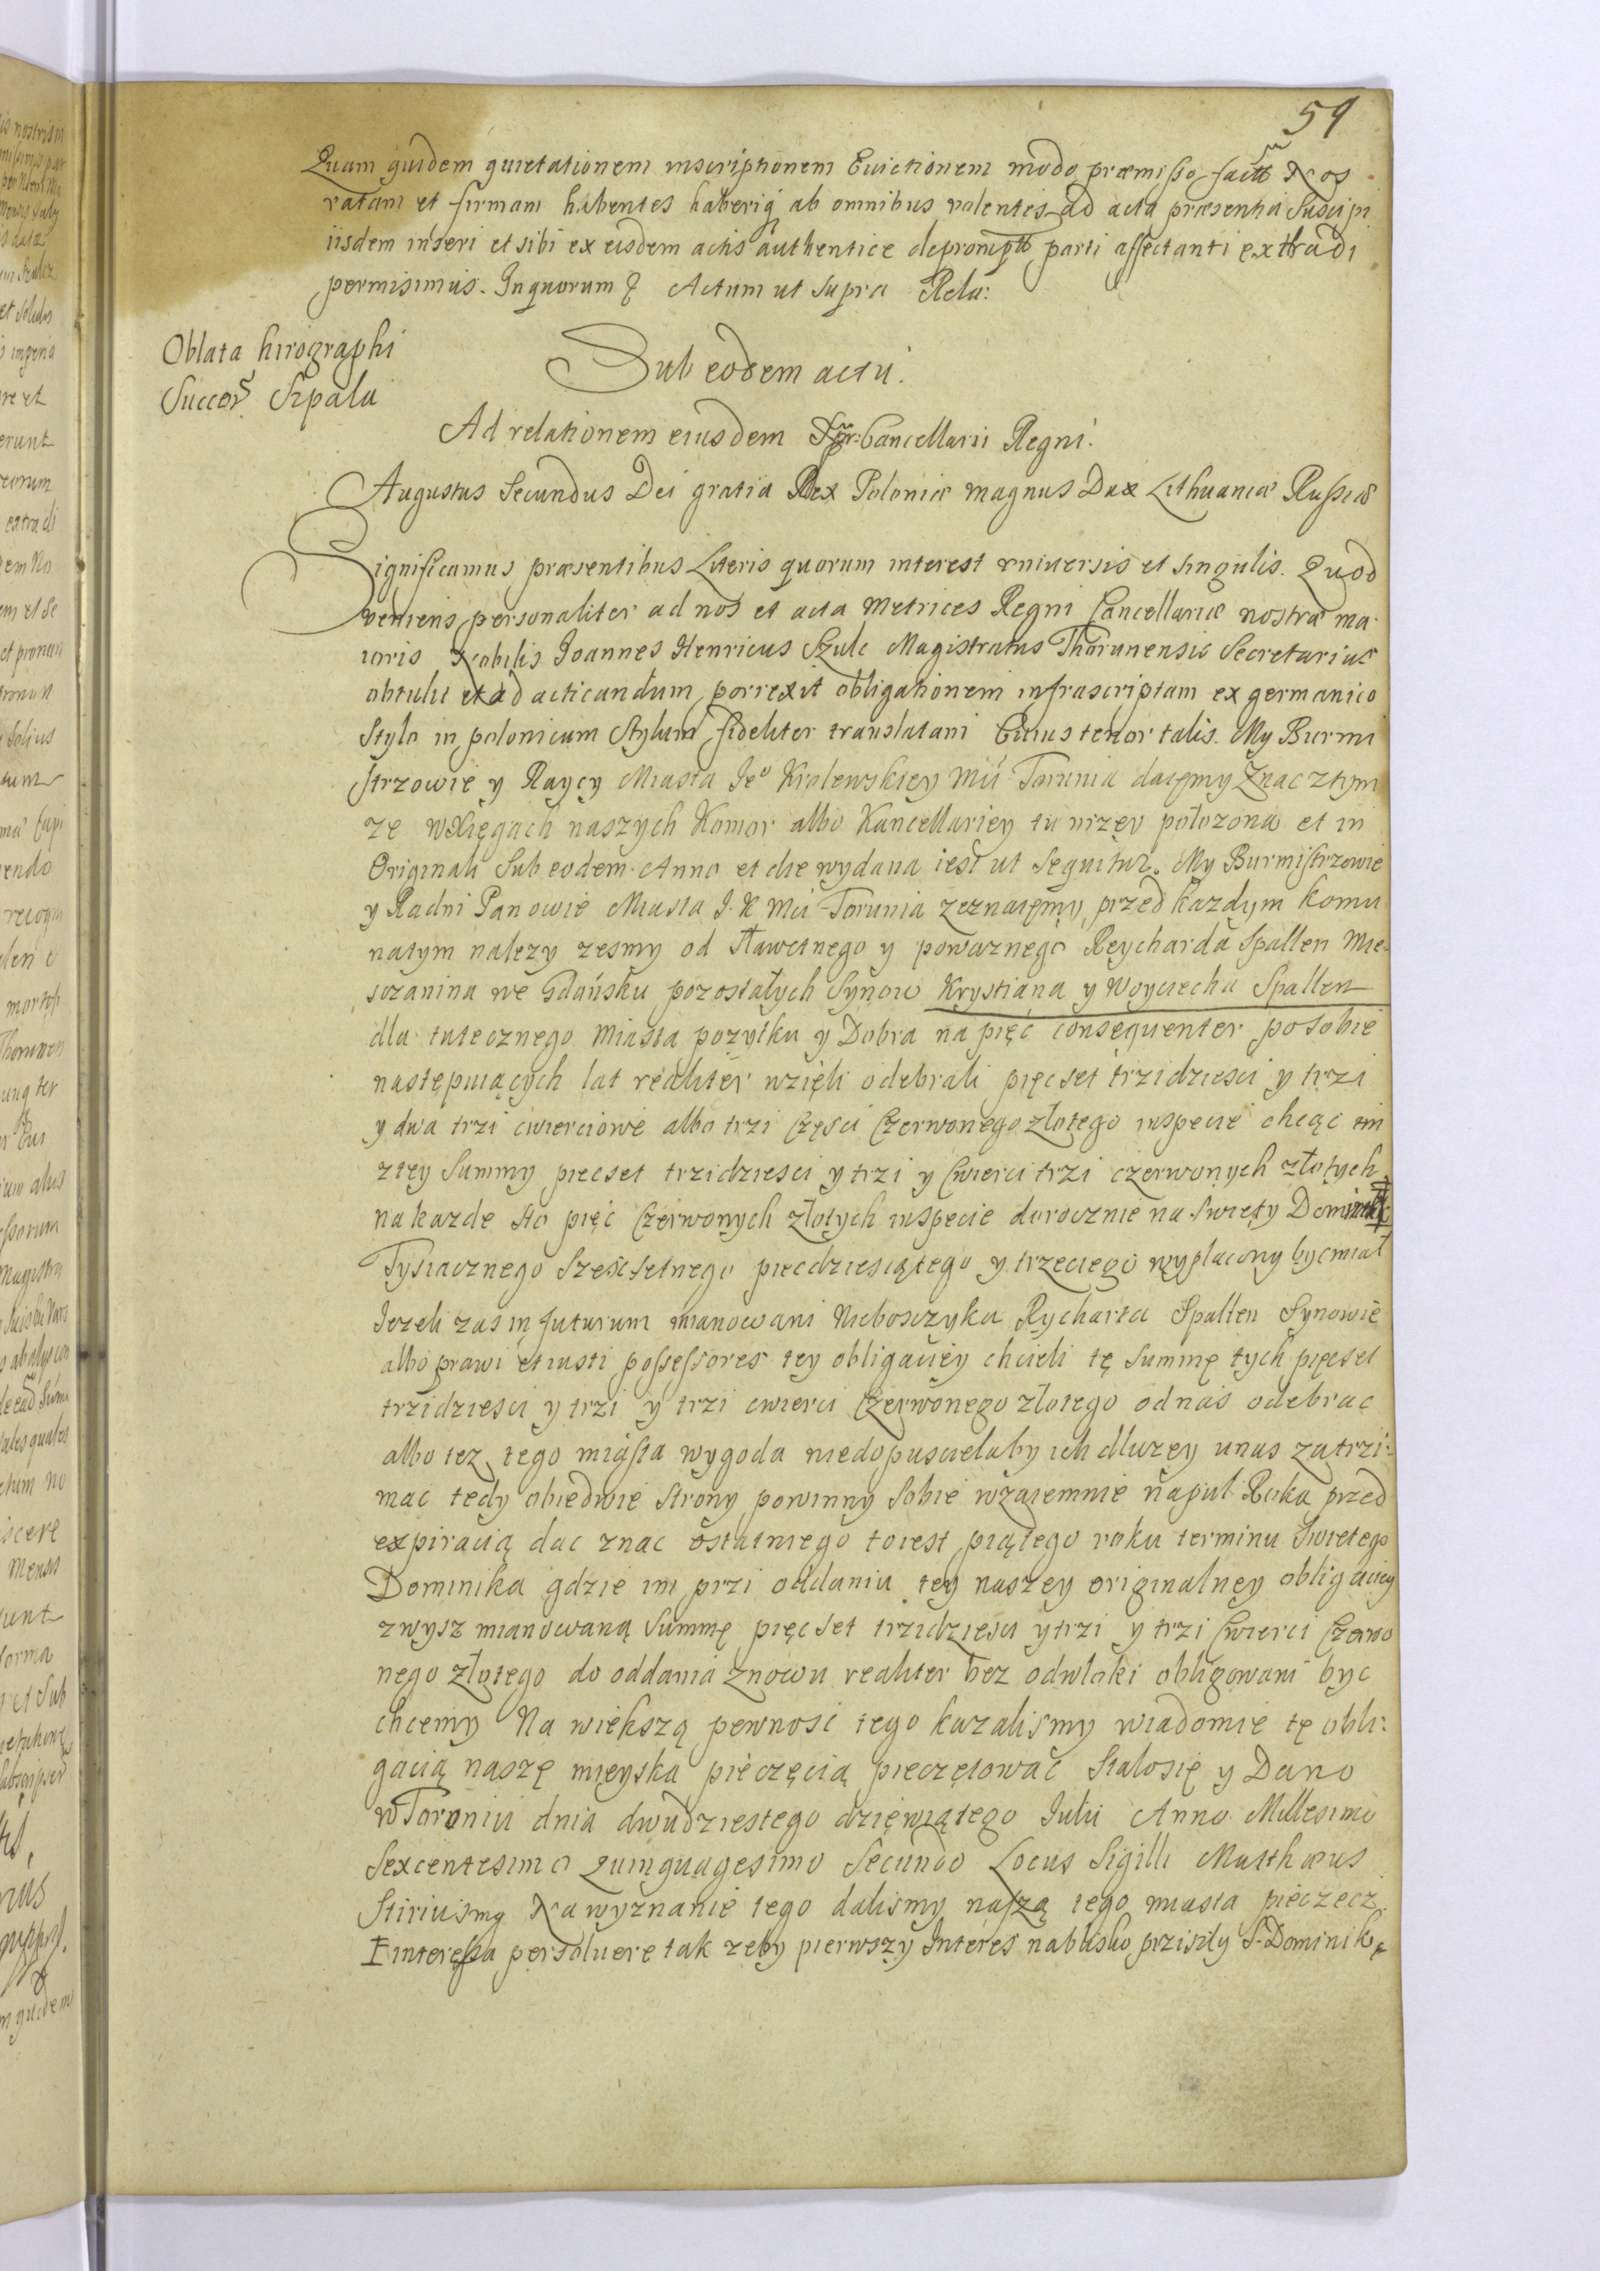 59
Quam quidem quietationem inscriptionem Evictionem modo præmisso factā Nos
ratam et firmam habentes haberiq ab omnibus volentes ad acta præsentia Suscipi
iisdem inseri et sibi ex eisdem actis authentice depromptā parti affectanti extradi
permisimus. In quorum Actum ut Supra Rela:
Oblata hirographi
Succor Szpala
Sub eodem actu.
Ad relationem eiusdem Cancellarii Regni.
Augustus Secundus Dei gratia Rex Poloniæ magnus Dux Lithuaniæ Russiæ
Significamus præsentibus Literis quorum interest universis et singulis. Quod
veniens personaliter ad nos et acta Metrices Regni Cancellariæ nostræ ma
ioris Nobilis Joannes Henricus Szulc Magistratus Thorunensis Secretarius
obtulit et ad acticandum porrexit obligationem infrascriptam ex germanico
Stylo in polonicum Stylum fideliter translatam Cuius tenor talis. My Burmi
strzowie y Raycy Miasta Jeo Krolewskiey Mci Torunia daięmy Znac ztym
ze wXięgach naszych Komor albo Kancellariey tu wrzęv połozona et in
Originali Sub eodem Anno et die wydana iest ut Sequitur. My Burmistrzowie
y Radni Panowie Miasta J. K Mci Torunia zeznaięmy przed kazdym komu
natym nalezy zesmy od sławetnego y powaznego Reycharda Spallen Mie-
sczanina we Gdańsku pozostałych Synow Krystiana y Woyciecha Spallen
dla tutecznego Miasta pozytku y Dobra na pięć consequenter po sobie
następuiących lat realiter wzięli odebrali pięcset trzidziesci y trzi
y dwa trzi cwierciowe albo trzi Części Czerwonego złotego inspecie chcąc im
ztęy Summy piecset trzidziesci y trzi y Cwierci trzi czerwonych złotych
na kazde sto pięć Czerwonych złotych inspecie dorocznie na Swięty Dominik
Tysiącznego Szescsetnego piecdziesiątego y trzeciego wypłacony bycmiał
Jezeli zas in futurum mianowani Nieboszczyka Rycharta Spallen Synowie
albo prawi et iusti possessores tey obligaciey chcieli tę Summę tych pięcset
trzidziesci y trzi y trzi cwierci Czerwonego złotego odnas odebrac
albo tez tego miasta wygoda niedopuscielaby ich dluzey unas zatrzi-
mac tedy obiedwie Strony powinny Sobie wzaiemnie napul Roka przed
expiracią dac znac ostatniego toiest piątego roku terminu Swietego
Dominika gdzie im przi oddaniu tey naszey originalney obligaciey
zwysz mianowaną Summę pięcset trzidziesci y trzi y trzi Cwierci Czerwo
nego złotego do oddania znowu realiter bez odwloki obligowani byc
chcemy Na większą pewnosc tego kazalismy wiadomie tę obli:
gacią naszę mieyska pieczęcią pieczętowac Stalosię y Dano
w Toruniu dnia dwudziestego dziewiątego Julii Anno Millesimo
Sexcentesimo Quinquagesimo Secundo Locus Sigilli Matthæus
Stirius mp Na wyznanie tego dalismy naszą tego miasta pieczecz.
Ŧ interessa persoluere tak zeby pierwszy Interes nablisko przisiły S. Dominik